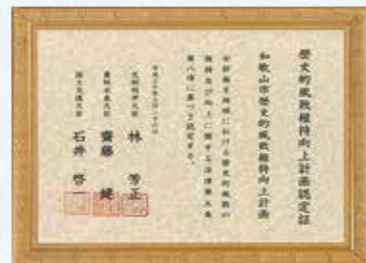 歴史的風致維持向上計画認定証
和歌山市歴史的風致維持向上計画
本計画を地域における歴史的風致の
維持及び向上に関する法律第五条
第八項に基づき認定する。
平成三十年三月二十六日
文部科学大臣 林 芳正
農林水産大臣 齋藤 健
国土交通大臣 石井 啓一